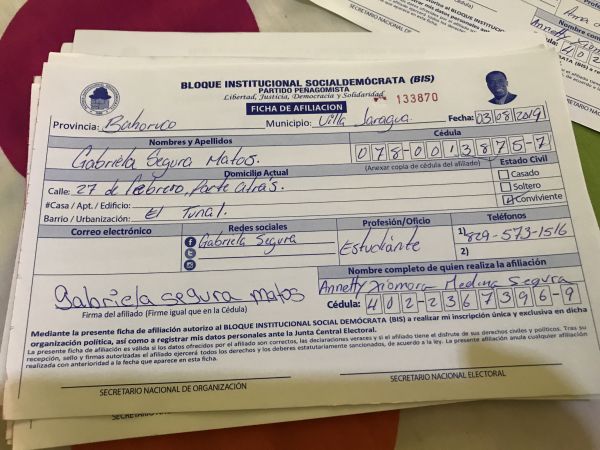 BLOQUE INSTITUCIONAL SOCIALDEMÓCRATA (BIS)
PARTIDO PEÑAGOMISTA
Libertad, Justicia, Democracia y Solidaridad
FICHA DE AFILIACION
133870
Provincia: Bahoruco Municipio: Villa Jaragua. Fecha: 03/08/2019
Nombres y Apellidos Cédula
Gabriela Segura Matos. 078-0013875-7
(Anexar copia de cédula del afiliado)
Domicilio Actual Estado Civil
Calle: 27 de Febrero, Parte atras. Casado
#Casa / Apt. / Edificio: Soltero
Barrio / Urbanización: El Tunal. Conviviente
Correo electrónico Redes sociales Profesión/Oficio Teléfonos
Gabriela Segura Estudiante 1) 829-573-1516
2)
Nombre completo de quien realiza la afiliación
Gabriela segura matos Annetty Xiomara Medina Segura
Firma del afiliado (Firme igual que en la Cédula) Cédula: 402-2367396-9
Mediante la presente ficha de afiliación autorizo al BLOQUE INSTITUCIONAL SOCIAL DEMÓCRATA (BIS) a realizar mi inscripción única y exclusiva en dicha
organización política, así como a registrar mis datos personales ante la Junta Central Electoral.
La presente ficha de afiliación es válida si los datos ofrecidos por el afiliado son correctos, las declaraciones veraces y si el afiliado tiene el disfrute de sus derechos civiles y políticos. Tras su
recepción, sello y firmas autorizadas el afiliado ejercerá todos los derechos y los deberes estatutariamente sancionados, de acuerdo a la ley. La presente afiliación anula cualquier afiliación
realizada con anterioridad a la fecha que aparece en esta ficha.
SECRETARIO NACIONAL DE ORGANIZACIÓN SECRETARIO NACIONAL ELECTORAL